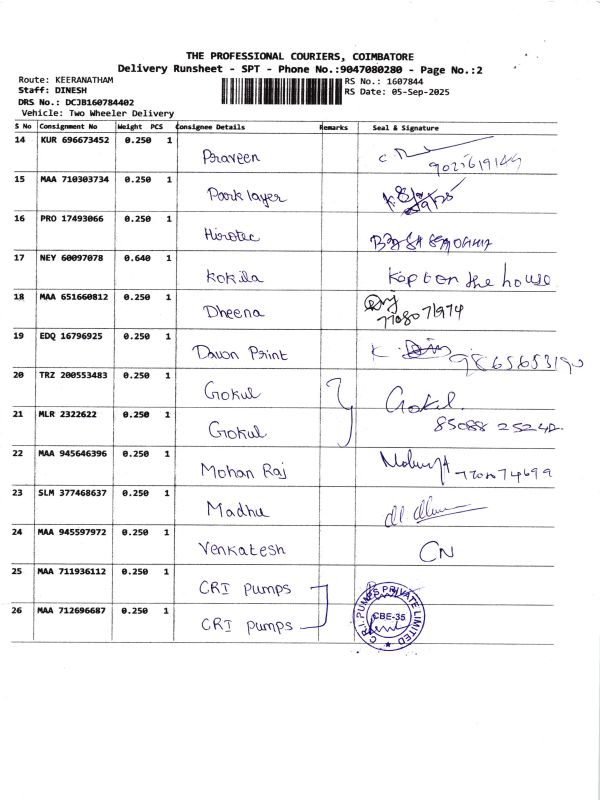 THE PROFESSIONAL COURIERS, COIMBATORE
Delivery Runsheet - SPT - Phone No.:9047080280 - Page No.:2
Route: KEERANATHAM
RS No.: 1607844
Staff: DINESH
RS Date: 05-Sep-2025
DRS No.: DCJB160784402
Vehicle: Two Wheeler Delivery
S No Consignment No Weight PCS Consignee Details Remarks Seal & Signature
14 KUR 696673452 0.250 1 Praveen
15 MAA 710303734 0.250 1 Park layer
16 PRO 17493066 0.250 1 Hirotec
17 NEY 60097078 0.640 1 Kokila Kept on the house
18 MAA 651660812 0.250 1 Dheena
7708071974
19 EDQ 16796925 0.250 1 Dawn Print K.
20 TRZ 200553483 0.250 1 Gokul Gokul.
21 MLR 2322622 0.250 1 Gokul 85088 25242
22 MAA 945646396 0.250 1 Mohan Raj
23 SLM 377468637 0.250 1 Madhu
24 MAA 945597972 0.250 1 Venkatesh CN
25 MAA 711936112 0.250 1 CRI Pumps
26 MAA 712696687 0.250 1 CRI Pumps
C.R.I. PUMPS PRIVATE LIMITED
CBE-35